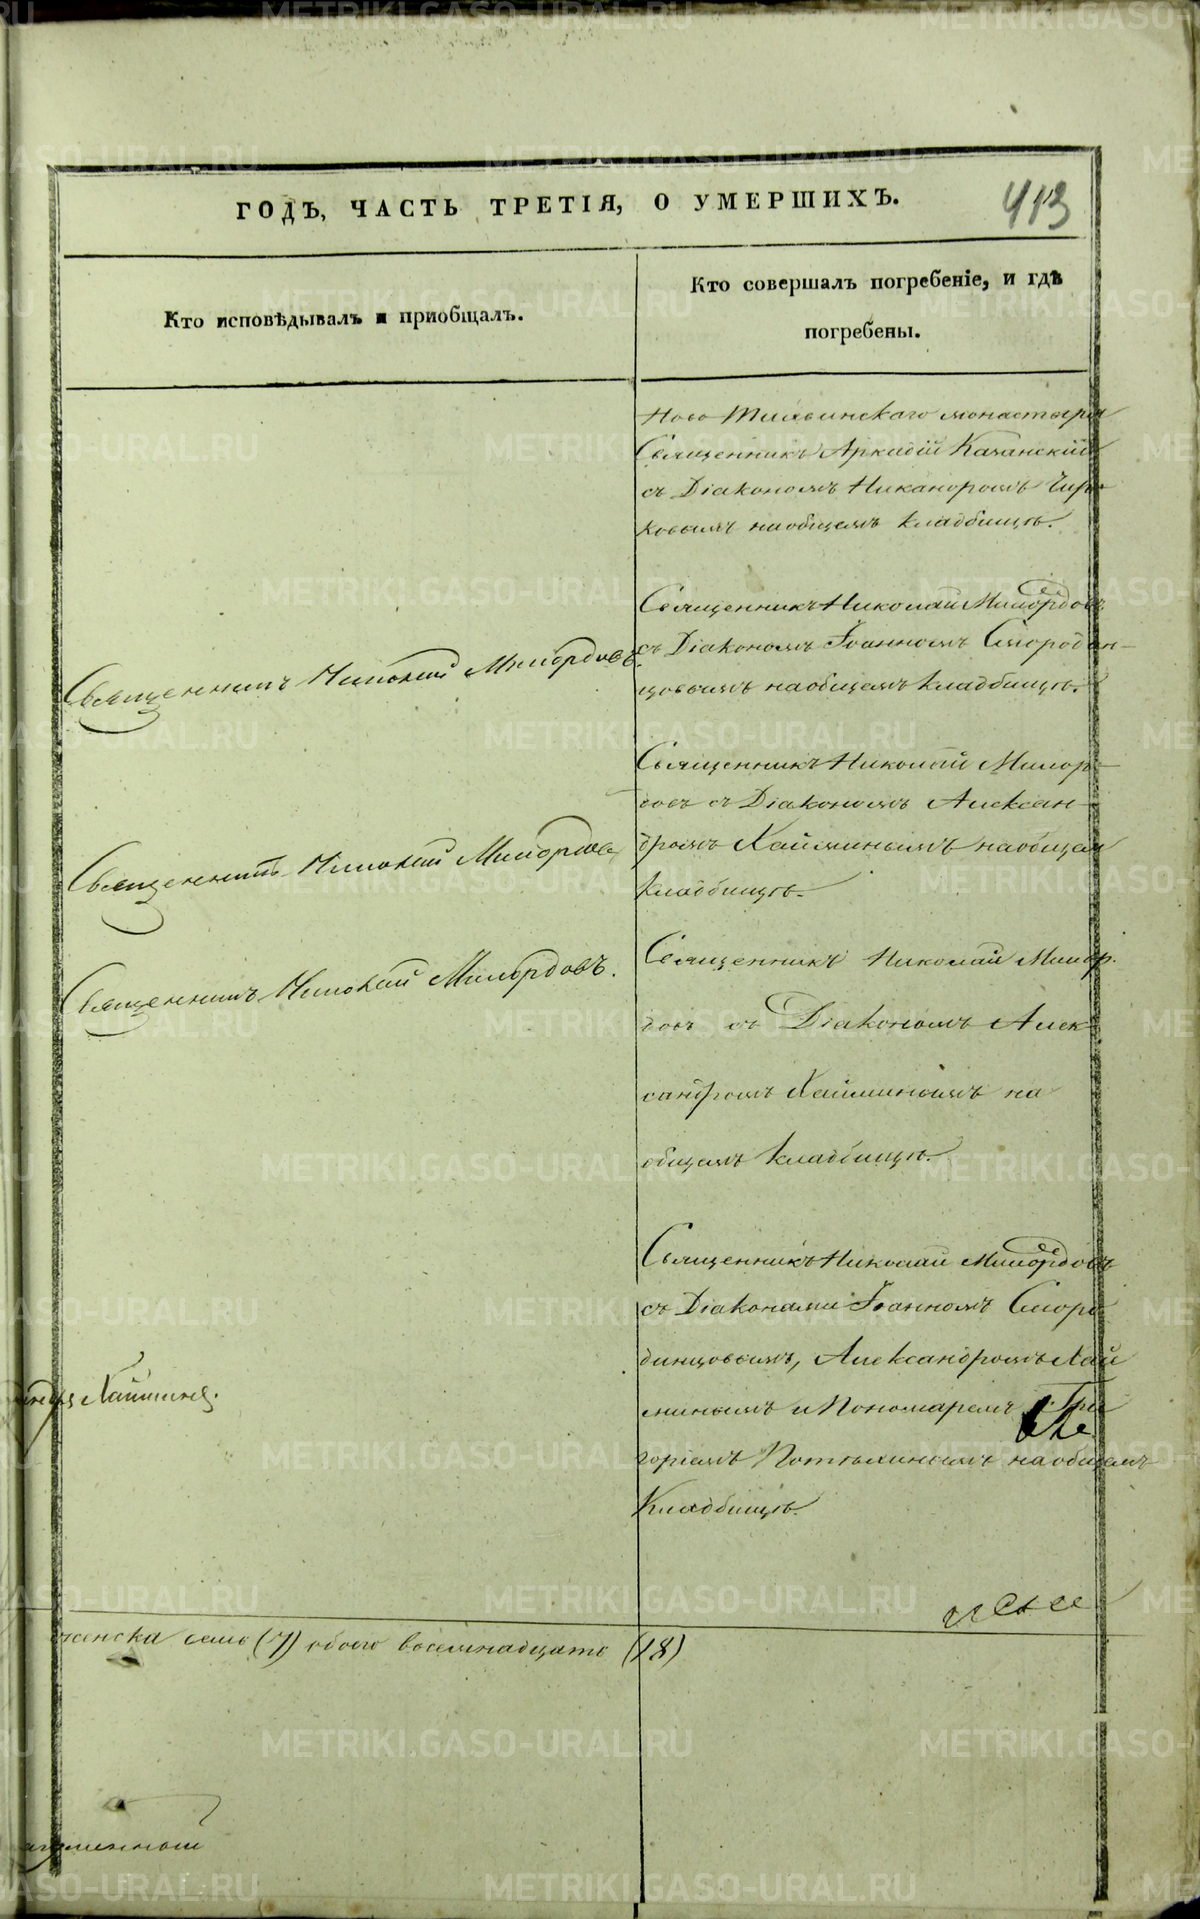 ГОДЪ, ЧАСТЬ ТРЕТІЯ, О УМЕРШИХЪ.
413
Кто исповѣдывалъ и пріобщалъ.
Кто совершалъ погребеніе, и гдѣ
погребены.
Ново Тихвинскаго монастыря
Священникъ Аркадій
съ Діакономъ Никаноромъ
ковымъ на общемъ кладбищѣ.
Священникъ Николай Милордовъ
Священникъ Николай Милордовъ
съ Діакономъ Іоанномъ Смородин-
цовымъ на общемъ кладбищѣ.
Священникъ Николай Милордовъ
Священникъ Николай Милор-
довъ съ Діакономъ Алексан-
дромъ на общемъ
кладбищѣ.
Священникъ Николай Милордовъ.
Священникъ Николай Милор-
довъ съ Діакономъ Алек-
сандромъ на
общемъ кладбищѣ.
Священникъ Николай Милордовъ
съ Діаконами Іоанномъ Сморо
динцовымъ, Александромъ
и Пономаремъ Гри
горіемъ на общемъ
Кладбищѣ.
женска семь (7) обоего восемнадцать (18)
METRIKI.GASO-URAL.RU